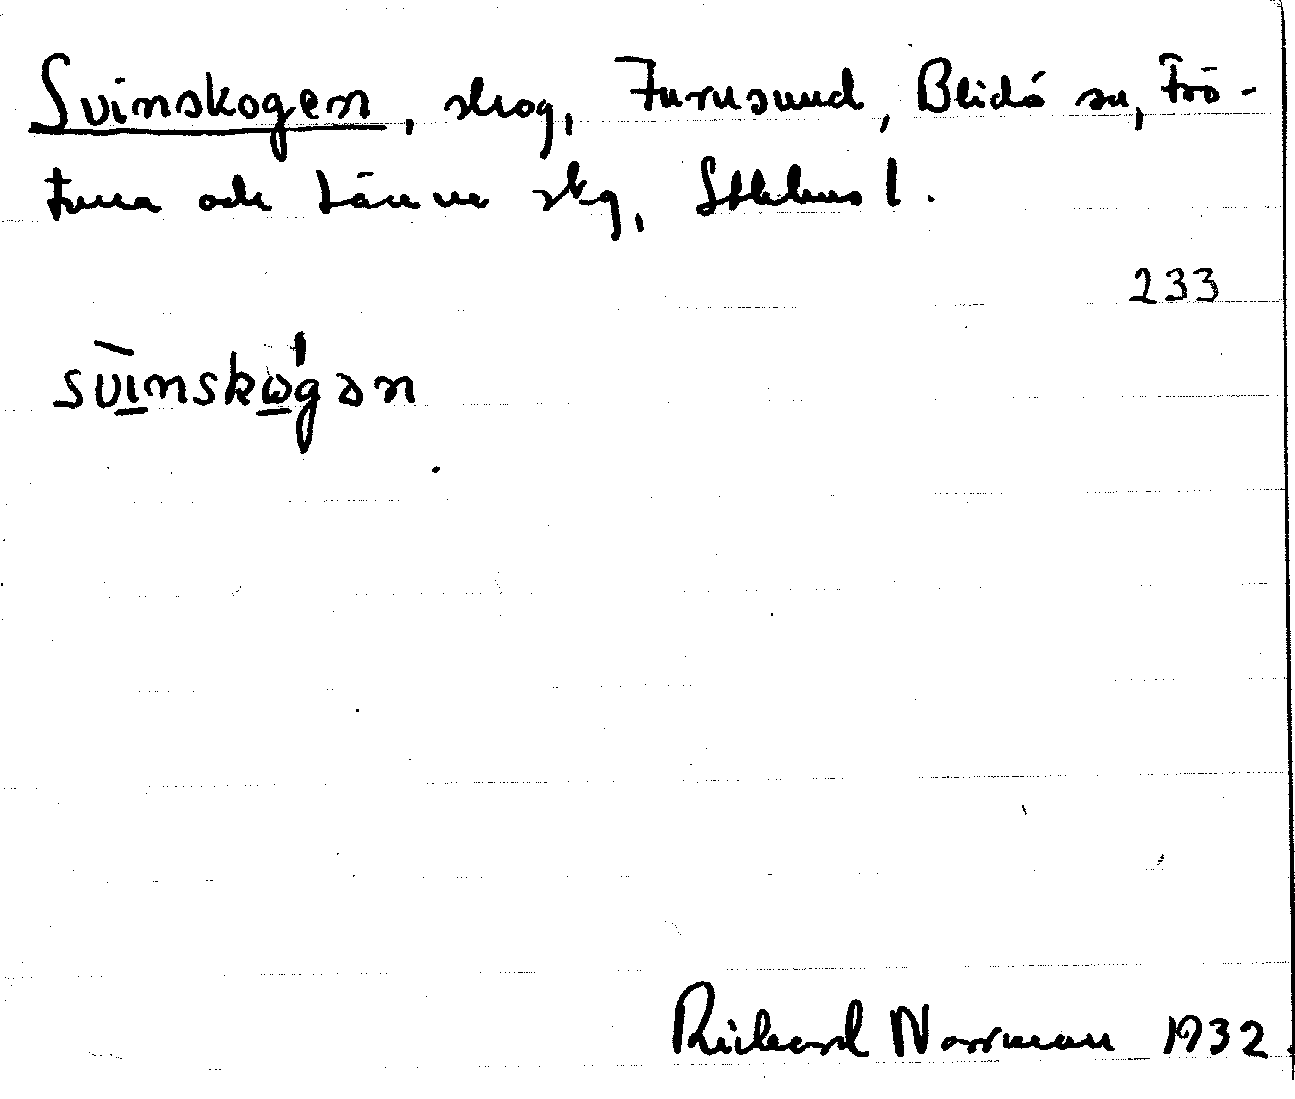 Svinskogen, skog, Furusund, Blidö sn, Frö-
tuna och Länna skg, Sthlms l.
233
svinskωgən
Richard Norrman 1932.